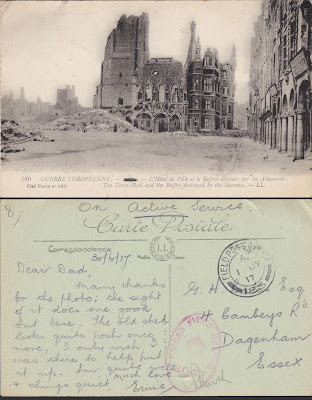 580 GUERRE EUROPÉENNE. — L'Hôtel de Ville et le Beffroi détruits par les Allemands.
Visé Paris n° 580 The Town-Hall and the Belfry destroyed by the Germans. — LL.
8/ On Active Service
Carte Postale
Correspondance
30/6/17
LL
FIELD POST
17
Dear Dad,
Many thanks
for the photo; the sight
of it does one good
out here. The old shed
looks quite posh once
more, I only wish I
was there to help put
it up. I'm quite well
& things quiet. Much love
Ernie
G H Esq
H Camberys Rd
Dagenham
Essex